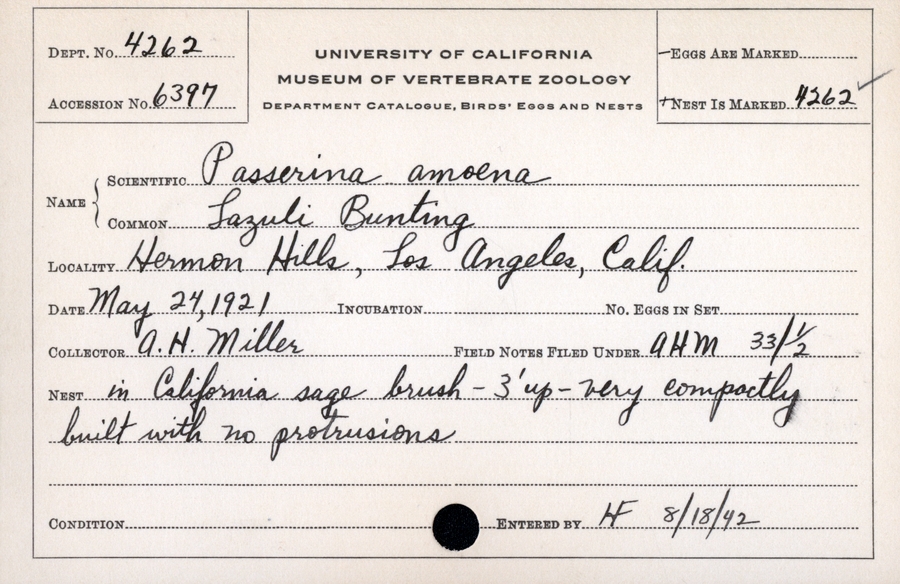 DEPT. No. 4262
ACCESSION No. 6397
UNIVERSITY OF CALIFORNIA
MUSEUM OF VERTEBRATE ZOOLOGY
DEPARTMENT CATALOGUE, BIRDS' EGGS AND NESTS
-EGGS ARE MARKED
+NEST IS MARKED 4262 ✓
NAME { SCIENTIFIC Passerina amoena
COMMON Lazuli Bunting
LOCALITY Hermon Hills, Los Angeles, Calif.
DATE May 24, 1921 INCURATION NO. EGGS IN SET
COLLECTOR A.H. Miller FIELD NOTES FILED UNDER AHM 33/1/2
NEST in California sage brush - 3' up - very compactly
built with no protrusions
CONDITION ENTERED BY HF 8/18/42